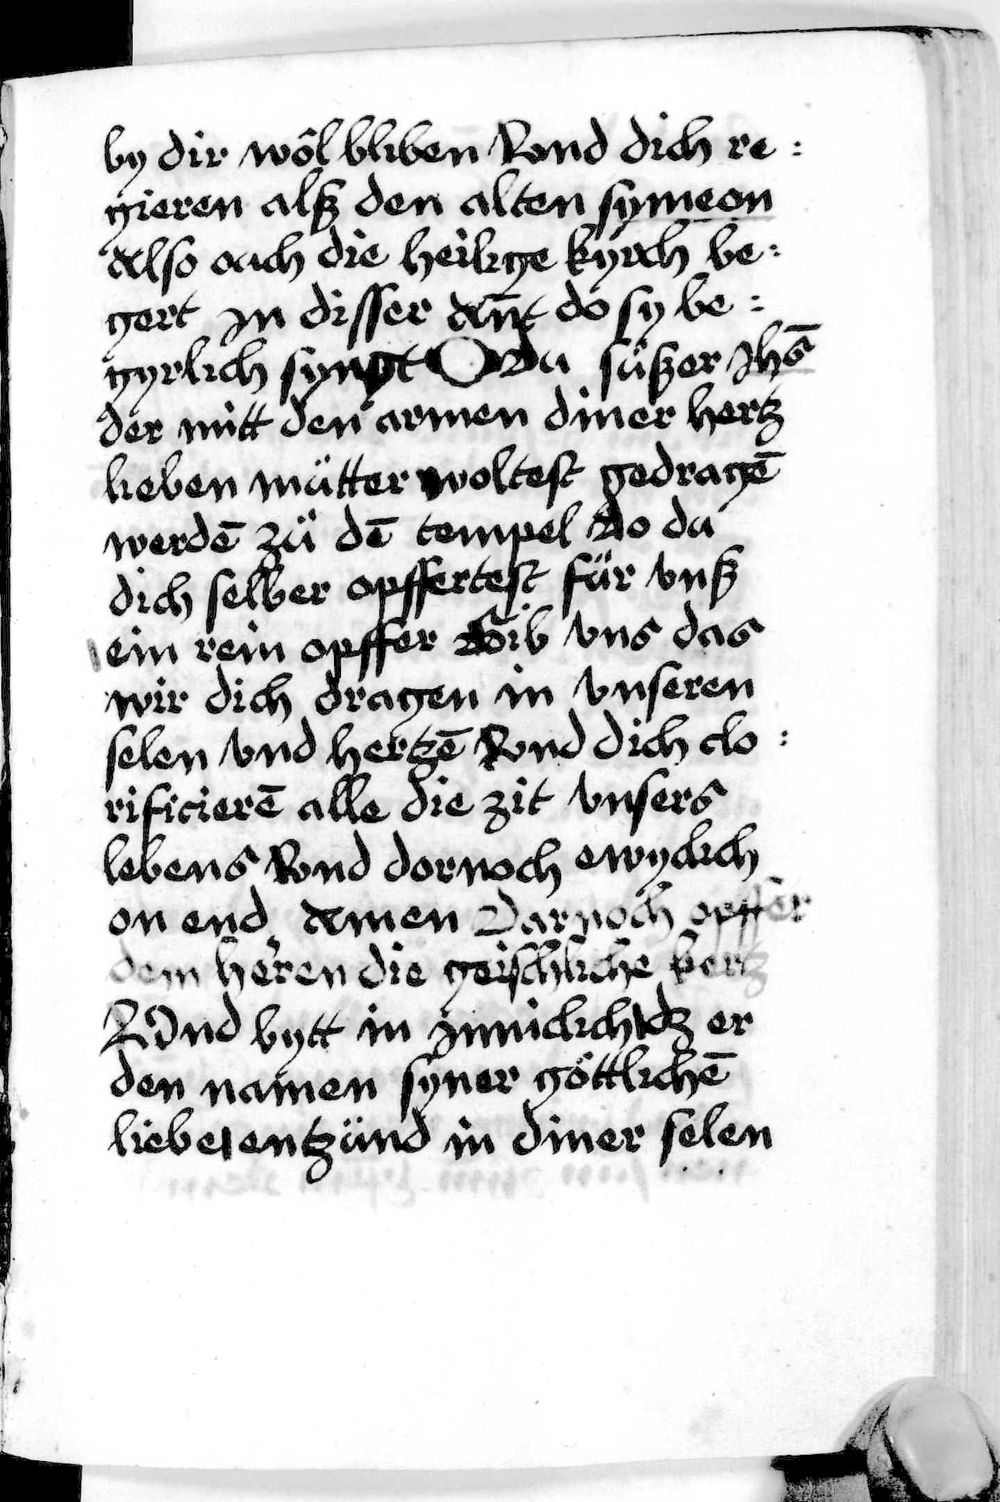 by dir wôl bliben Vnd dich re :
gieren alsz den alten symeon
Also ouch die heilige kyrch be :
gert In disser ant̄ do sy be :
gyrlich syngt O Du süszer Jhs̄
der mitt den armen diner hertz
lieben mütter woltest gedragē
werdē zü dē tempel Do du
dich selber opffertest für vnsz
ein rein opffer Gib vns das
wir dich dragen in vnseren
selen vnd hertzē Vnd dich clo :
rificierē alle die zit vnsers
lebens Vnd dornoch ewyclich
on end Amen Darnoch opffer
dem heren die geischliche kertz
Vnd bytt in Innicklich dz er
den namen syner göttlichē
liebe entzünd in diner selen